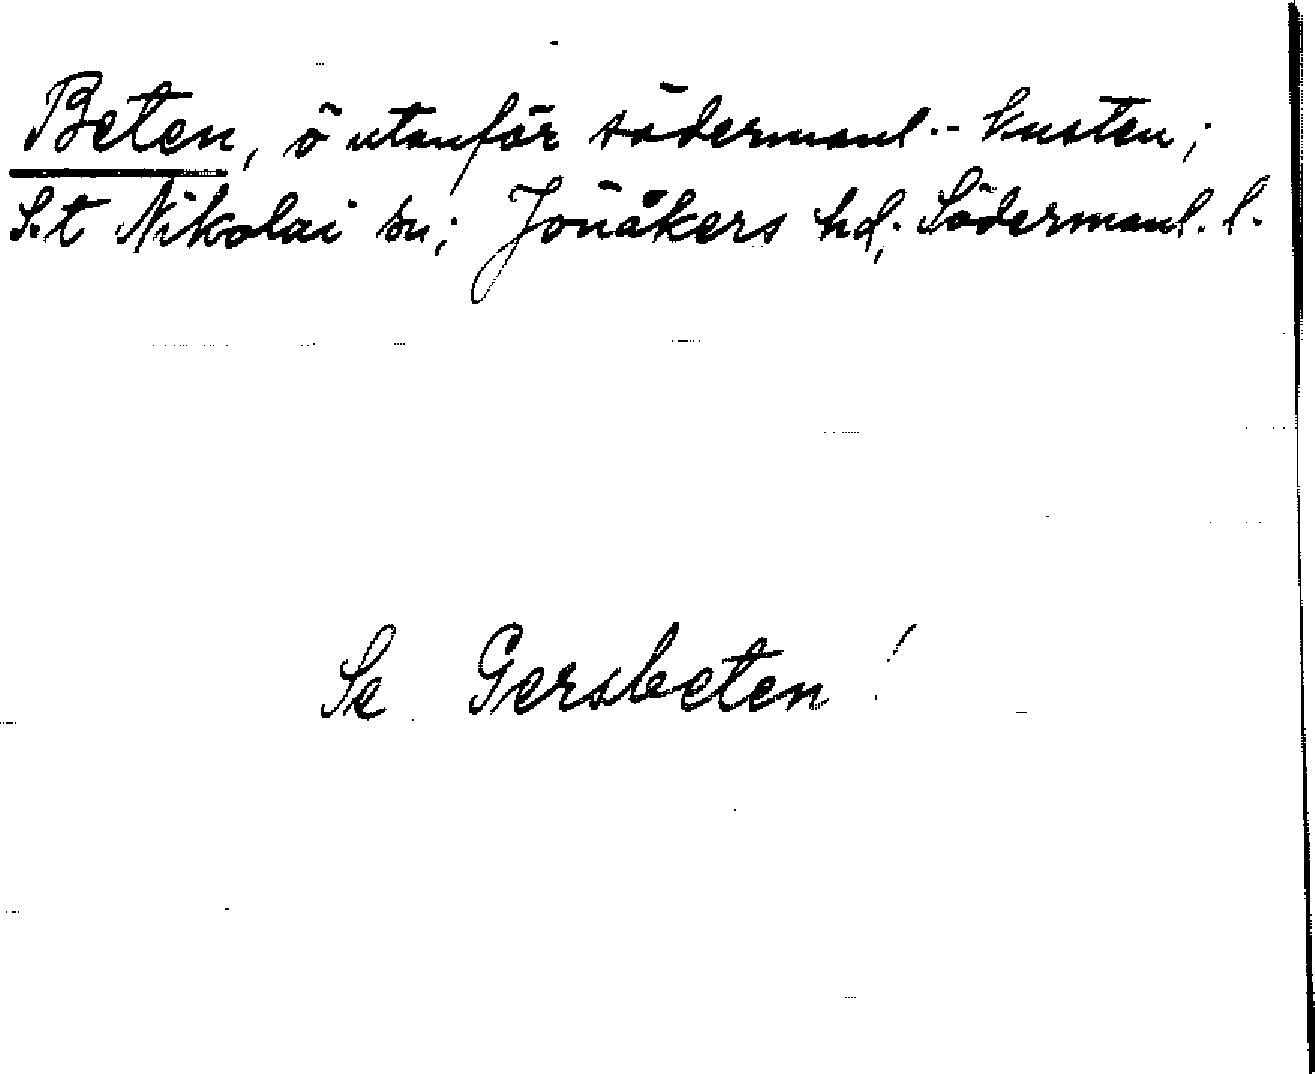 Beten, ö utanför södermanl.- kusten;
S:t Nikolai sn; Jönåkers hd; Södermanl. l.
Se Gersbeten!